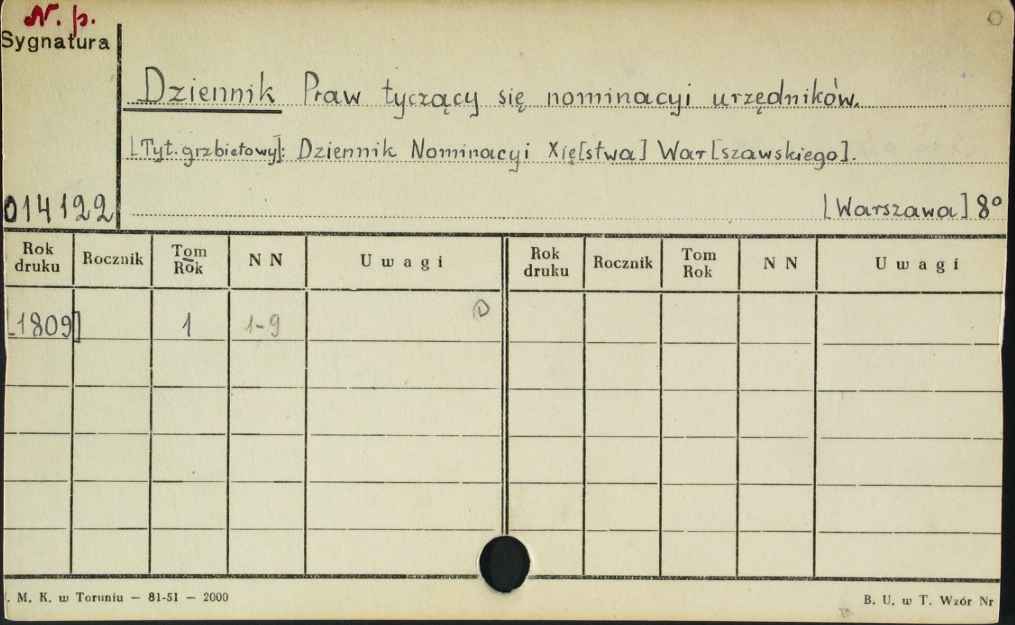 N. p.
Sygnatura
Dziennik Praw tyczący się nominacyi urzędników.
[Tyt. grzbietowy]: Dziennik Nominacyi Xię[stwa] War[szawskiego].
014122
[Warszawa] 8°
Rok druku Rocznik Tom Rok N N Uwagi Rok druku Rocznik Tom Rok N N Uwagi
[1809] 1 1-9 D
. M. K. w Toruniu — 81-51 — 2000
B. U. w T. Wzór Nr